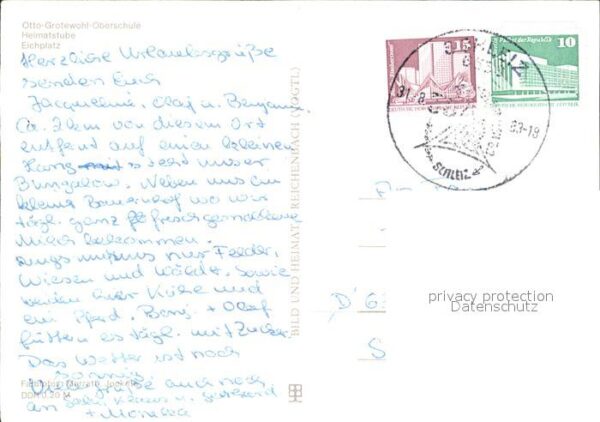 Otto-Grotewohl-Oberschule
Heimatstube
Eichplatz
Herzliche Urlaubsgrüße
senden Euch
Jacqueline, Olaf u. Benjamin.
Ca. 2 km von diesem Ort
entfernt auf einen kleinen
Hang steht unser
Bungalow. Neben uns ein
kleines Bauernhof wo wir
tägl. ganz frischgemolkene
Milch bekommen.
uns nur Felder,
Wiesen und Wälder. Sowie
weiden hier Kühe und
ein Pferd. Benj. + Olaf
füttern es tägl. mit Zucker.
Das Wetter ist noch
sonnig
Viele Grüße auch noch
an Klaus u. Gerhard
+ Monika
DDR 0,20 M
BILD UND HEIMAT REICHENBACH (VOGTL)
15
Palast der Republik
10
SCHLEIZ
31.-8.
83-18
SCHLEIZ
D
S
privacy protection
Datenschutz